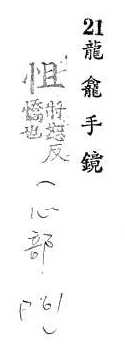 21龍龕手鏡
怚
將恕反
憍也
(心部
P61)